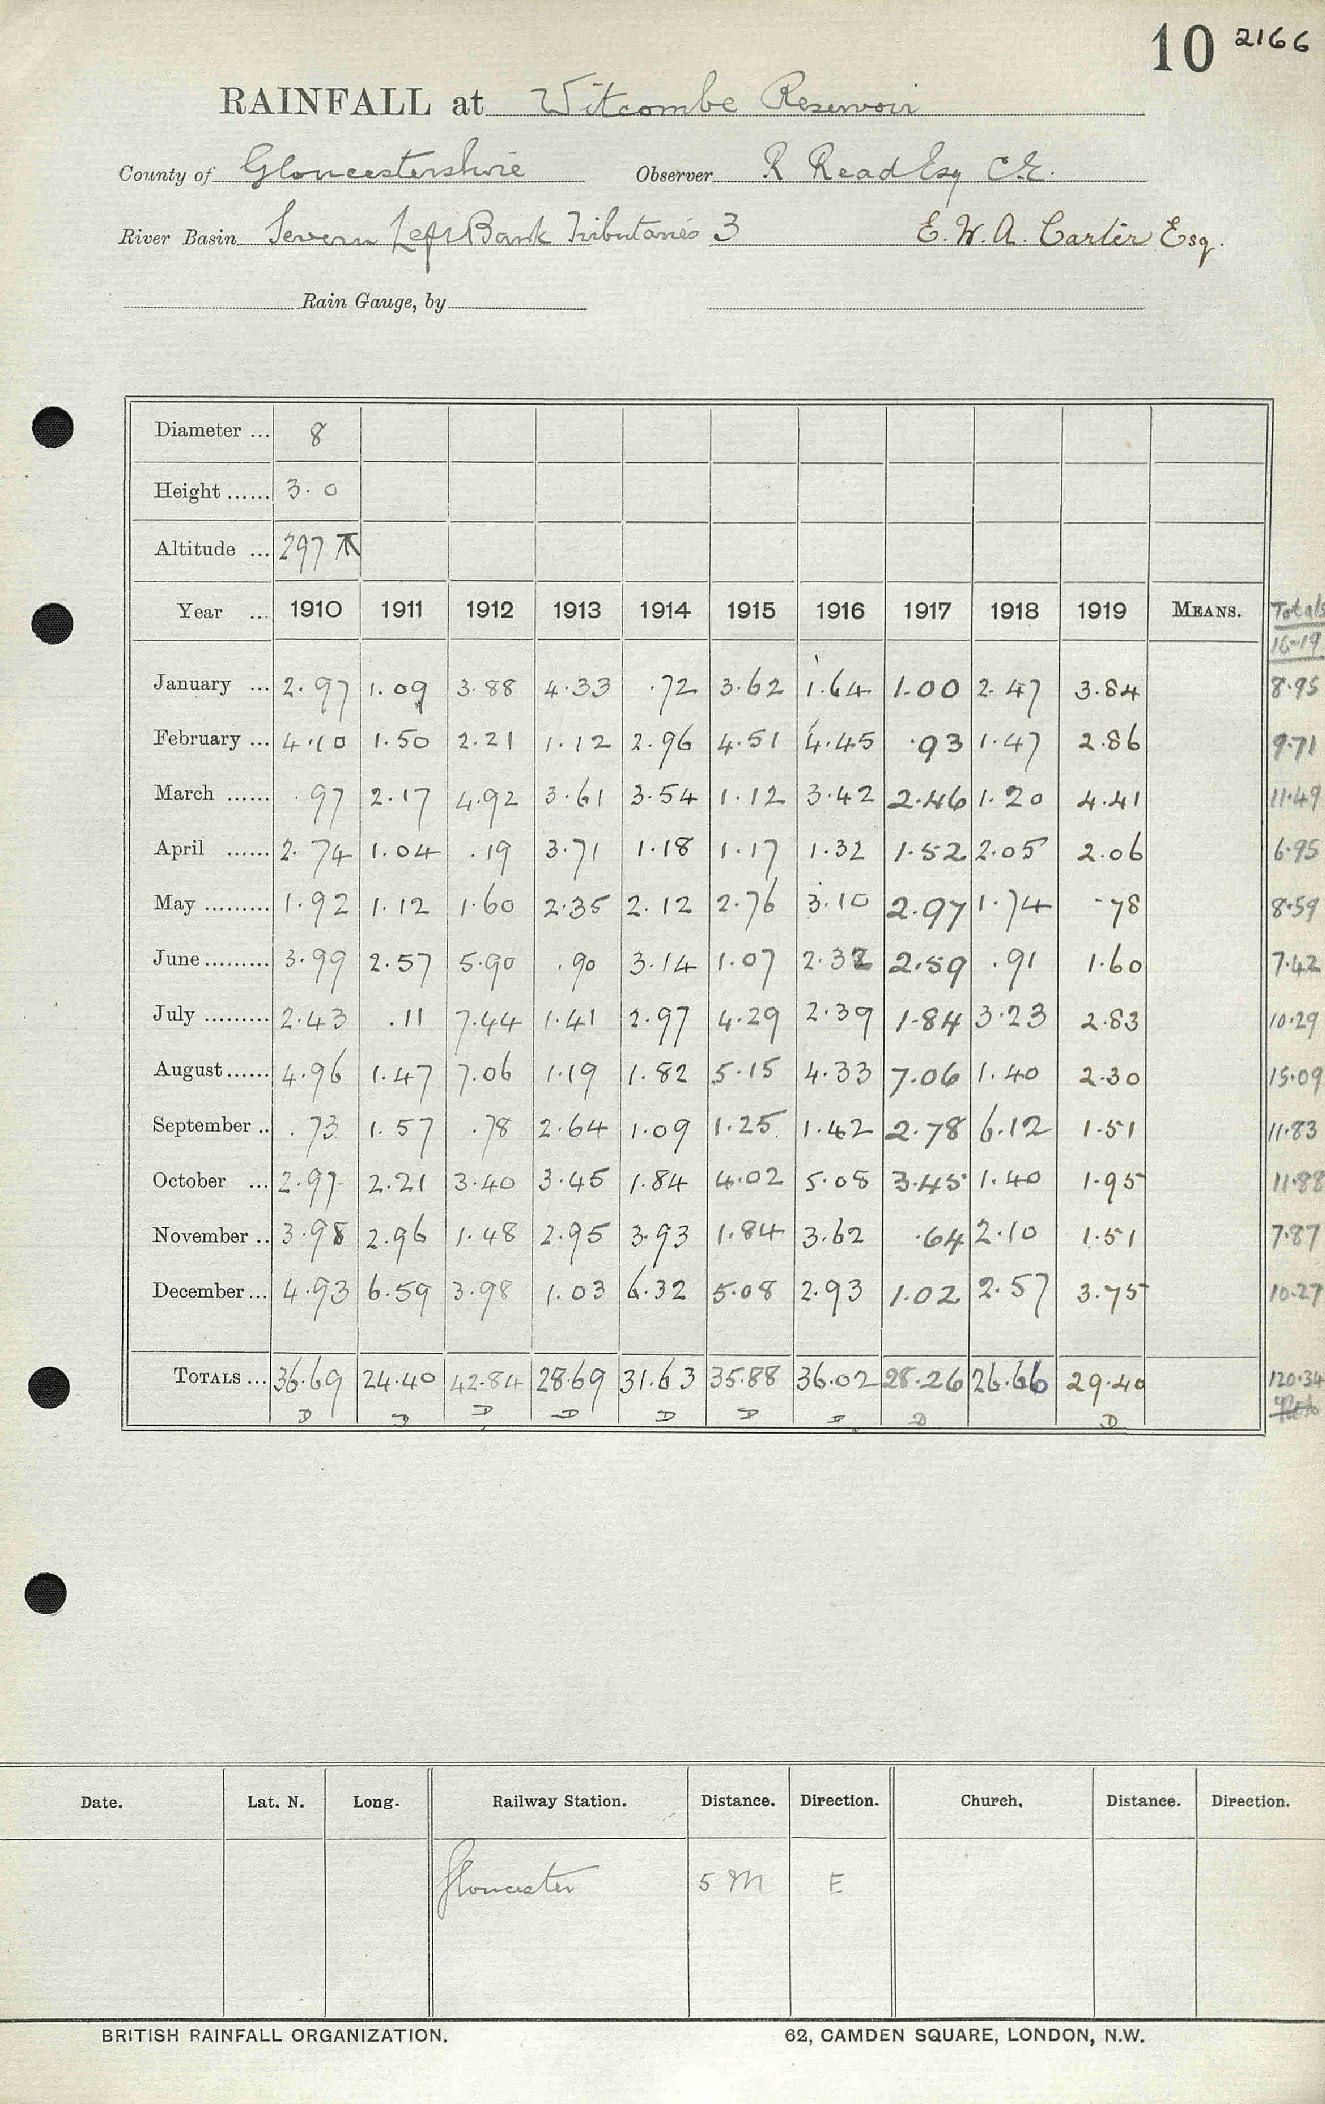 10 2166
RAINFALL at Witcombe Reservoir
County of Gloucestershire Observer R Read Esq C.E.
River Basin Severn Left Bank Tributaries 3 E. W. A. Carter Esq.
Rain Gauge, by
Diameter ... 8
Height ...... 3.0
Altitude ... 297
Year ... 1910 1911 1912 1913 1914 1915 1916 1917 1918 1919 MEANS. Totals
16-19
January ... 2.97 1.09 3.88 4.33 .72 3.62 1.64 1.00 2.47 3.84 8.95
February ... 4.10 1.50 2.21 1.12 2.96 4.51 4.45 .93 1.47 2.86 9.71
March ...... .97 2.17 4.92 3.61 3.54 1.12 3.42 2.46 1.20 4.41 11.49
April ...... 2.74 1.04 .19 3.71 1.18 1.17 1.32 1.52 2.05 2.06 6.95
May ......... 1.92 1.12 1.60 2.35 2.12 2.76 3.10 2.97 1.74 .78 8.59
June ......... 3.99 2.57 5.90 .90 3.14 1.07 2.32 2.59 .91 1.60 7.42
July ......... 2.43 .11 7.44 1.41 2.97 4.29 2.39 1.84 3.23 2.83 10.29
August ...... 4.96 1.47 7.06 1.19 1.82 5.15 4.33 7.06 1.40 2.30 15.09
September .. .73 1.57 .78 2.64 1.09 1.25 1.42 2.78 6.12 1.51 11.83
October ... 2.97 2.21 3.40 3.45 1.84 4.02 5.08 3.45 1.40 1.95 11.88
November .. 3.98 2.96 1.48 2.95 3.93 1.84 3.62 .64 2.10 1.51 7.87
December ... 4.93 6.59 3.98 1.03 6.32 5.08 2.93 1.02 2.57 3.75 10.27
TOTALS ... 36.69 24.40 42.84 28.69 31.63 35.88 36.02 28.26 26.66 29.40 120.34
D D D D D D D D D
Date. Lat. N. Long. Railway Station. Distance. Direction. Church. Distance. Direction.
Gloucester 5 M E
BRITISH RAINFALL ORGANIZATION. 62, CAMDEN SQUARE, LONDON, N.W.